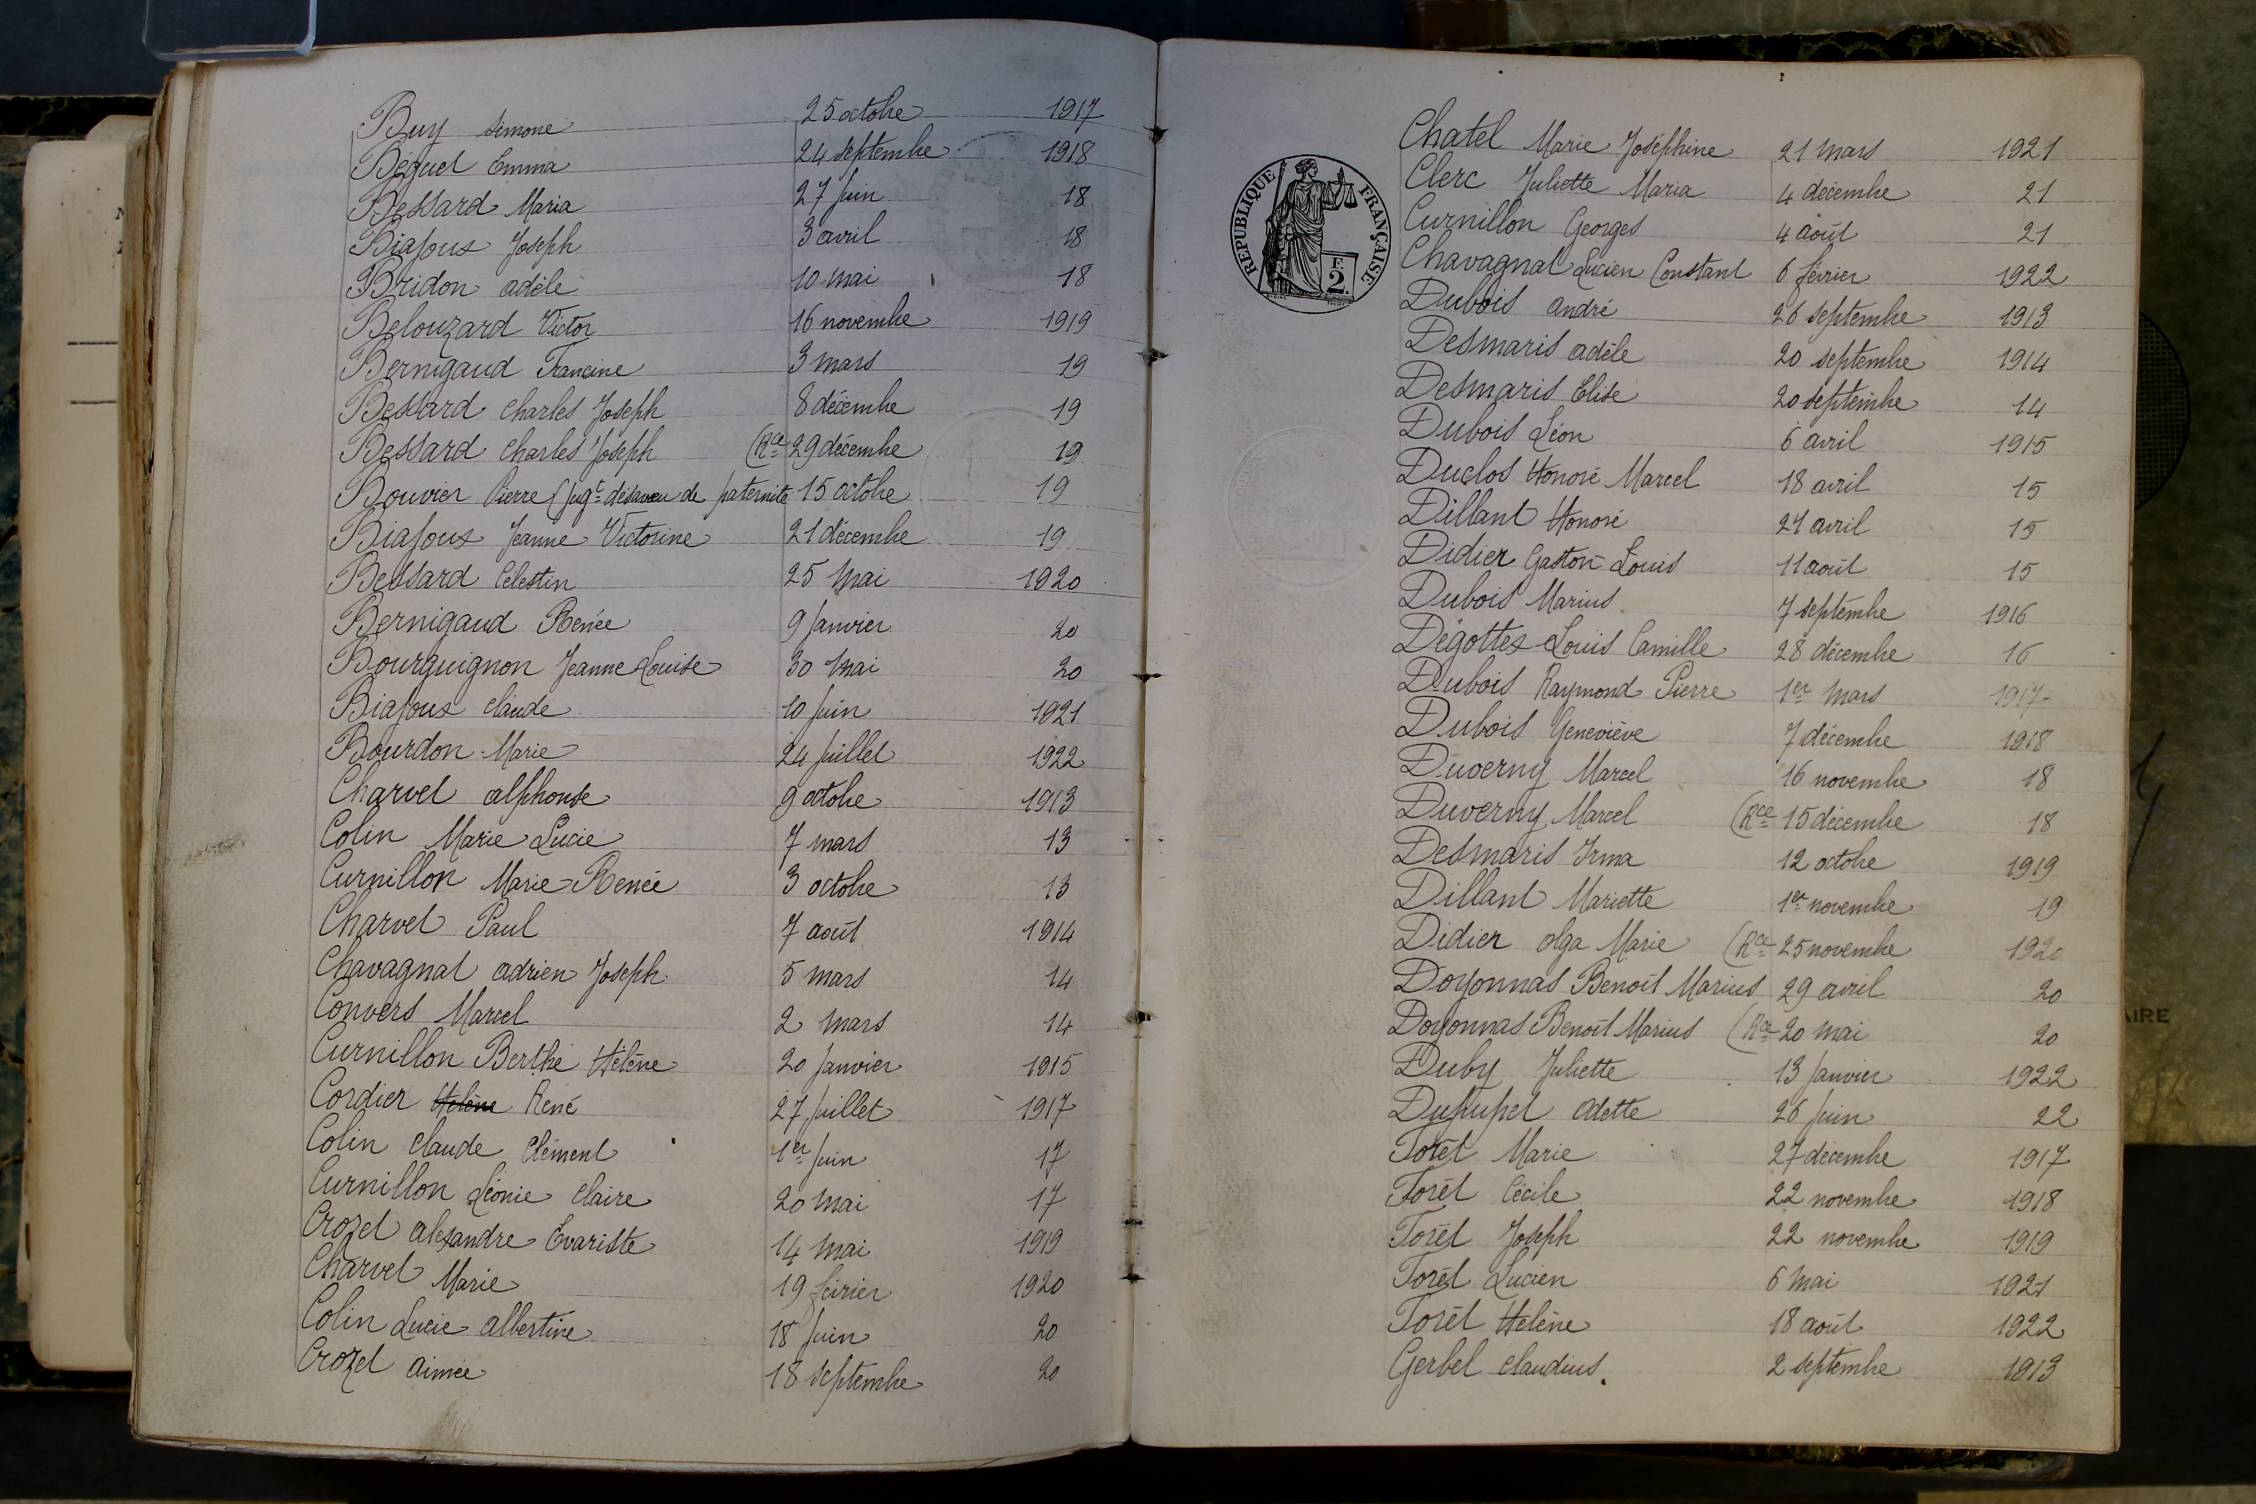 Buy Simone 25 octobre 1917
Béguet Emma 24 septembre 1918
Bessard Maria 27 juin 18
Biajoux Joseph 3 avril 18
Bridon adèle 10 mai 18
Belouzard Victor 16 novembre 1919
Bernigaud Francine 3 mars 19
Bessard Charles Joseph 8 décembre 19
Bessard Charles Joseph (Rce 29 décembre 19
Bouvier Pierre (Jugt désaveu de paternité 15 octobre 19
Biajoux Jeanne Victorine 21 décembre 19
Bessard Célestin 25 Mai 1920
Bernigaud Renée 9 janvier 20
Bourguignon Jeanne Louise 30 Mai 20
Biajoux Claude 10 juin 1921
Bourdon Marie 24 juillet 1922
Charvet alphonse 9 octobre 1913
Colin Marie Lucie 7 mars 13
Curnillon Marie-Renée 3 octobre 13
Charvet Paul 7 août 1914
Chavagnat adrien Joseph 5 mars 14
Convers Marcel 2 mars 14
Curnillon Berthe Hélène 20 janvier 1915
Cordier Hélène René 27 juillet 1917
Colin Claude Clément 1er juin 17
Curnillon Léonie Claire 20 mai 17
Crozet alexandre Evariste 14 mai 1919
Charvet Marie 19 février 1920
Colin Lucie albertine 18 juin 20
Crozet aimée 18 septembre 20
RÉPUBLIQUE FRANÇAISE
F. 2.
Chatel Marie Joséphine 21 Mars 1921
Clerc Juliette Maria 4 décembre 21
Curnillon Georges 4 août 21
Chavagnat Lucien Constant 6 février 1922
Dubois andré 26 septembre 1913
Desmaris adèle 20 septembre 1914
Desmaris Elise 20 septembre 14
Dubois Léon 6 avril 1915
Duclos Honoré Marcel 18 avril 15
Dillant Honoré 21 avril 15
Didier Gaston-Louis 11 août 15
Dubois Marius 7 septembre 1916
Dégottex Louis Camille 28 décembre 16
Dubois Raymond Pierre 1er Mars 1917
Dubois Geneviève 7 décembre 1918
Duverny Marcel 16 novembre 18
Duverny Marcel (Rce 15 décembre 18
Desmaris Irma 12 octobre 1919
Dillant Mariette 1er novembre 19
Didier Olga Marie (Rce 25 novembre 1920
Doyonnas Benoît Marius 29 avril 20
Doyonnas Benoît Marius (Rce 20 mai 20
Duby Juliette 13 janvier 1922
Dupupet Odette 26 juin 22
Forêt Marie 27 décembre 1917
Forêt Cécile 22 novembre 1918
Forêt Joseph 22 novembre 1919
Forêt Lucien 6 Mai 1921
Forêt Hélène 18 août 1922
Gerbel Claudius 2 septembre 1913